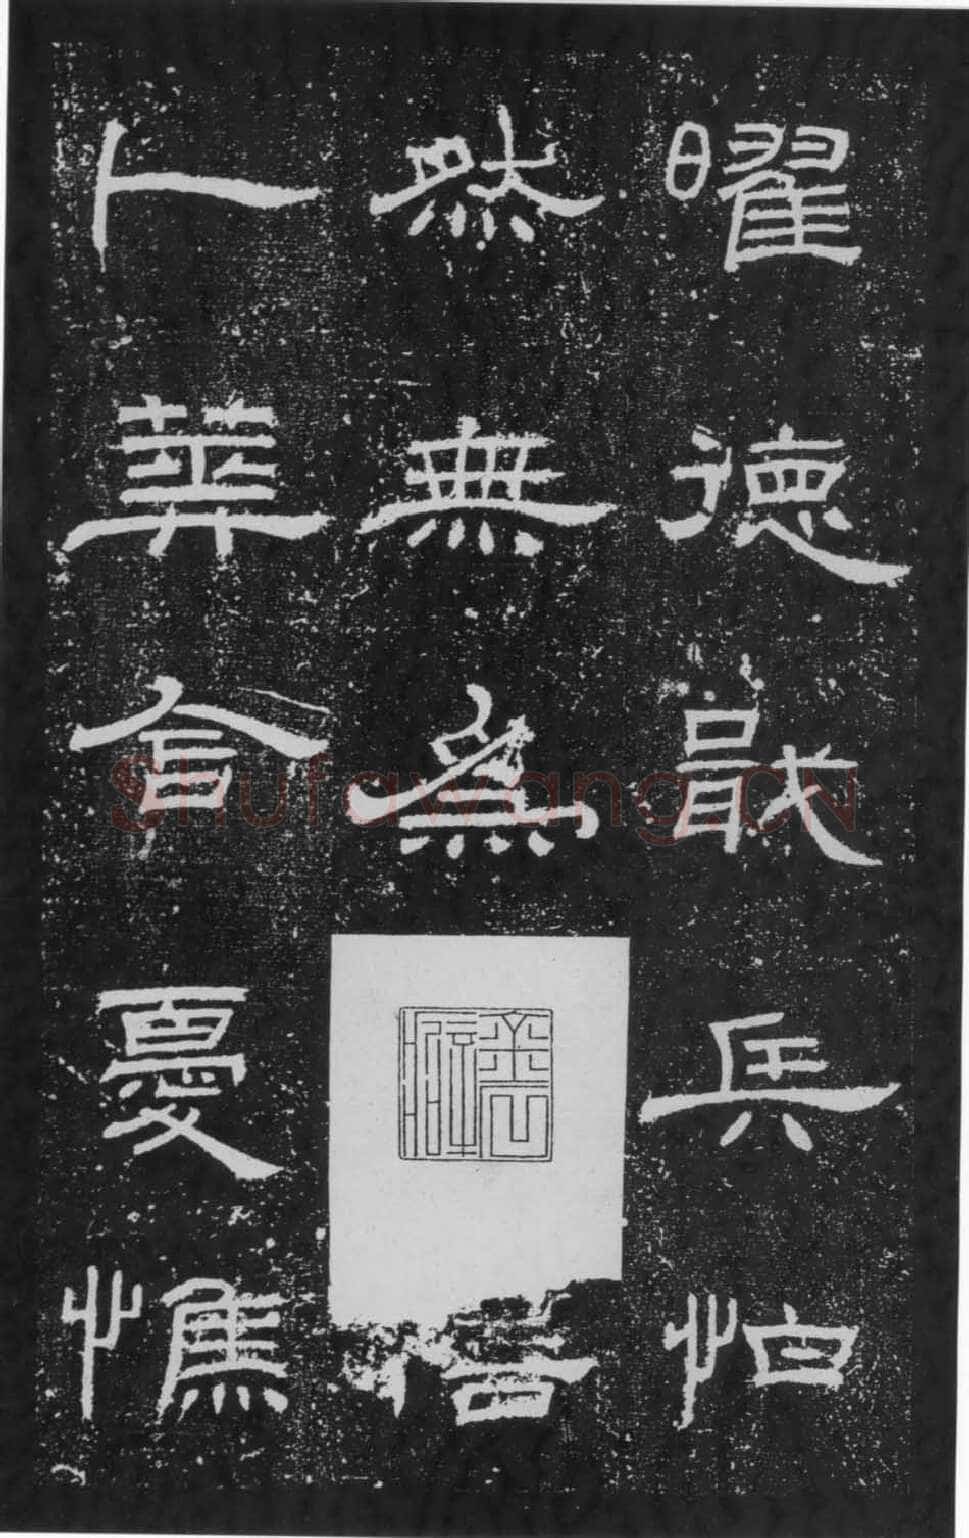 曜德戢兵怕
然無為
卜葬含憂憔
Shufawang.CN